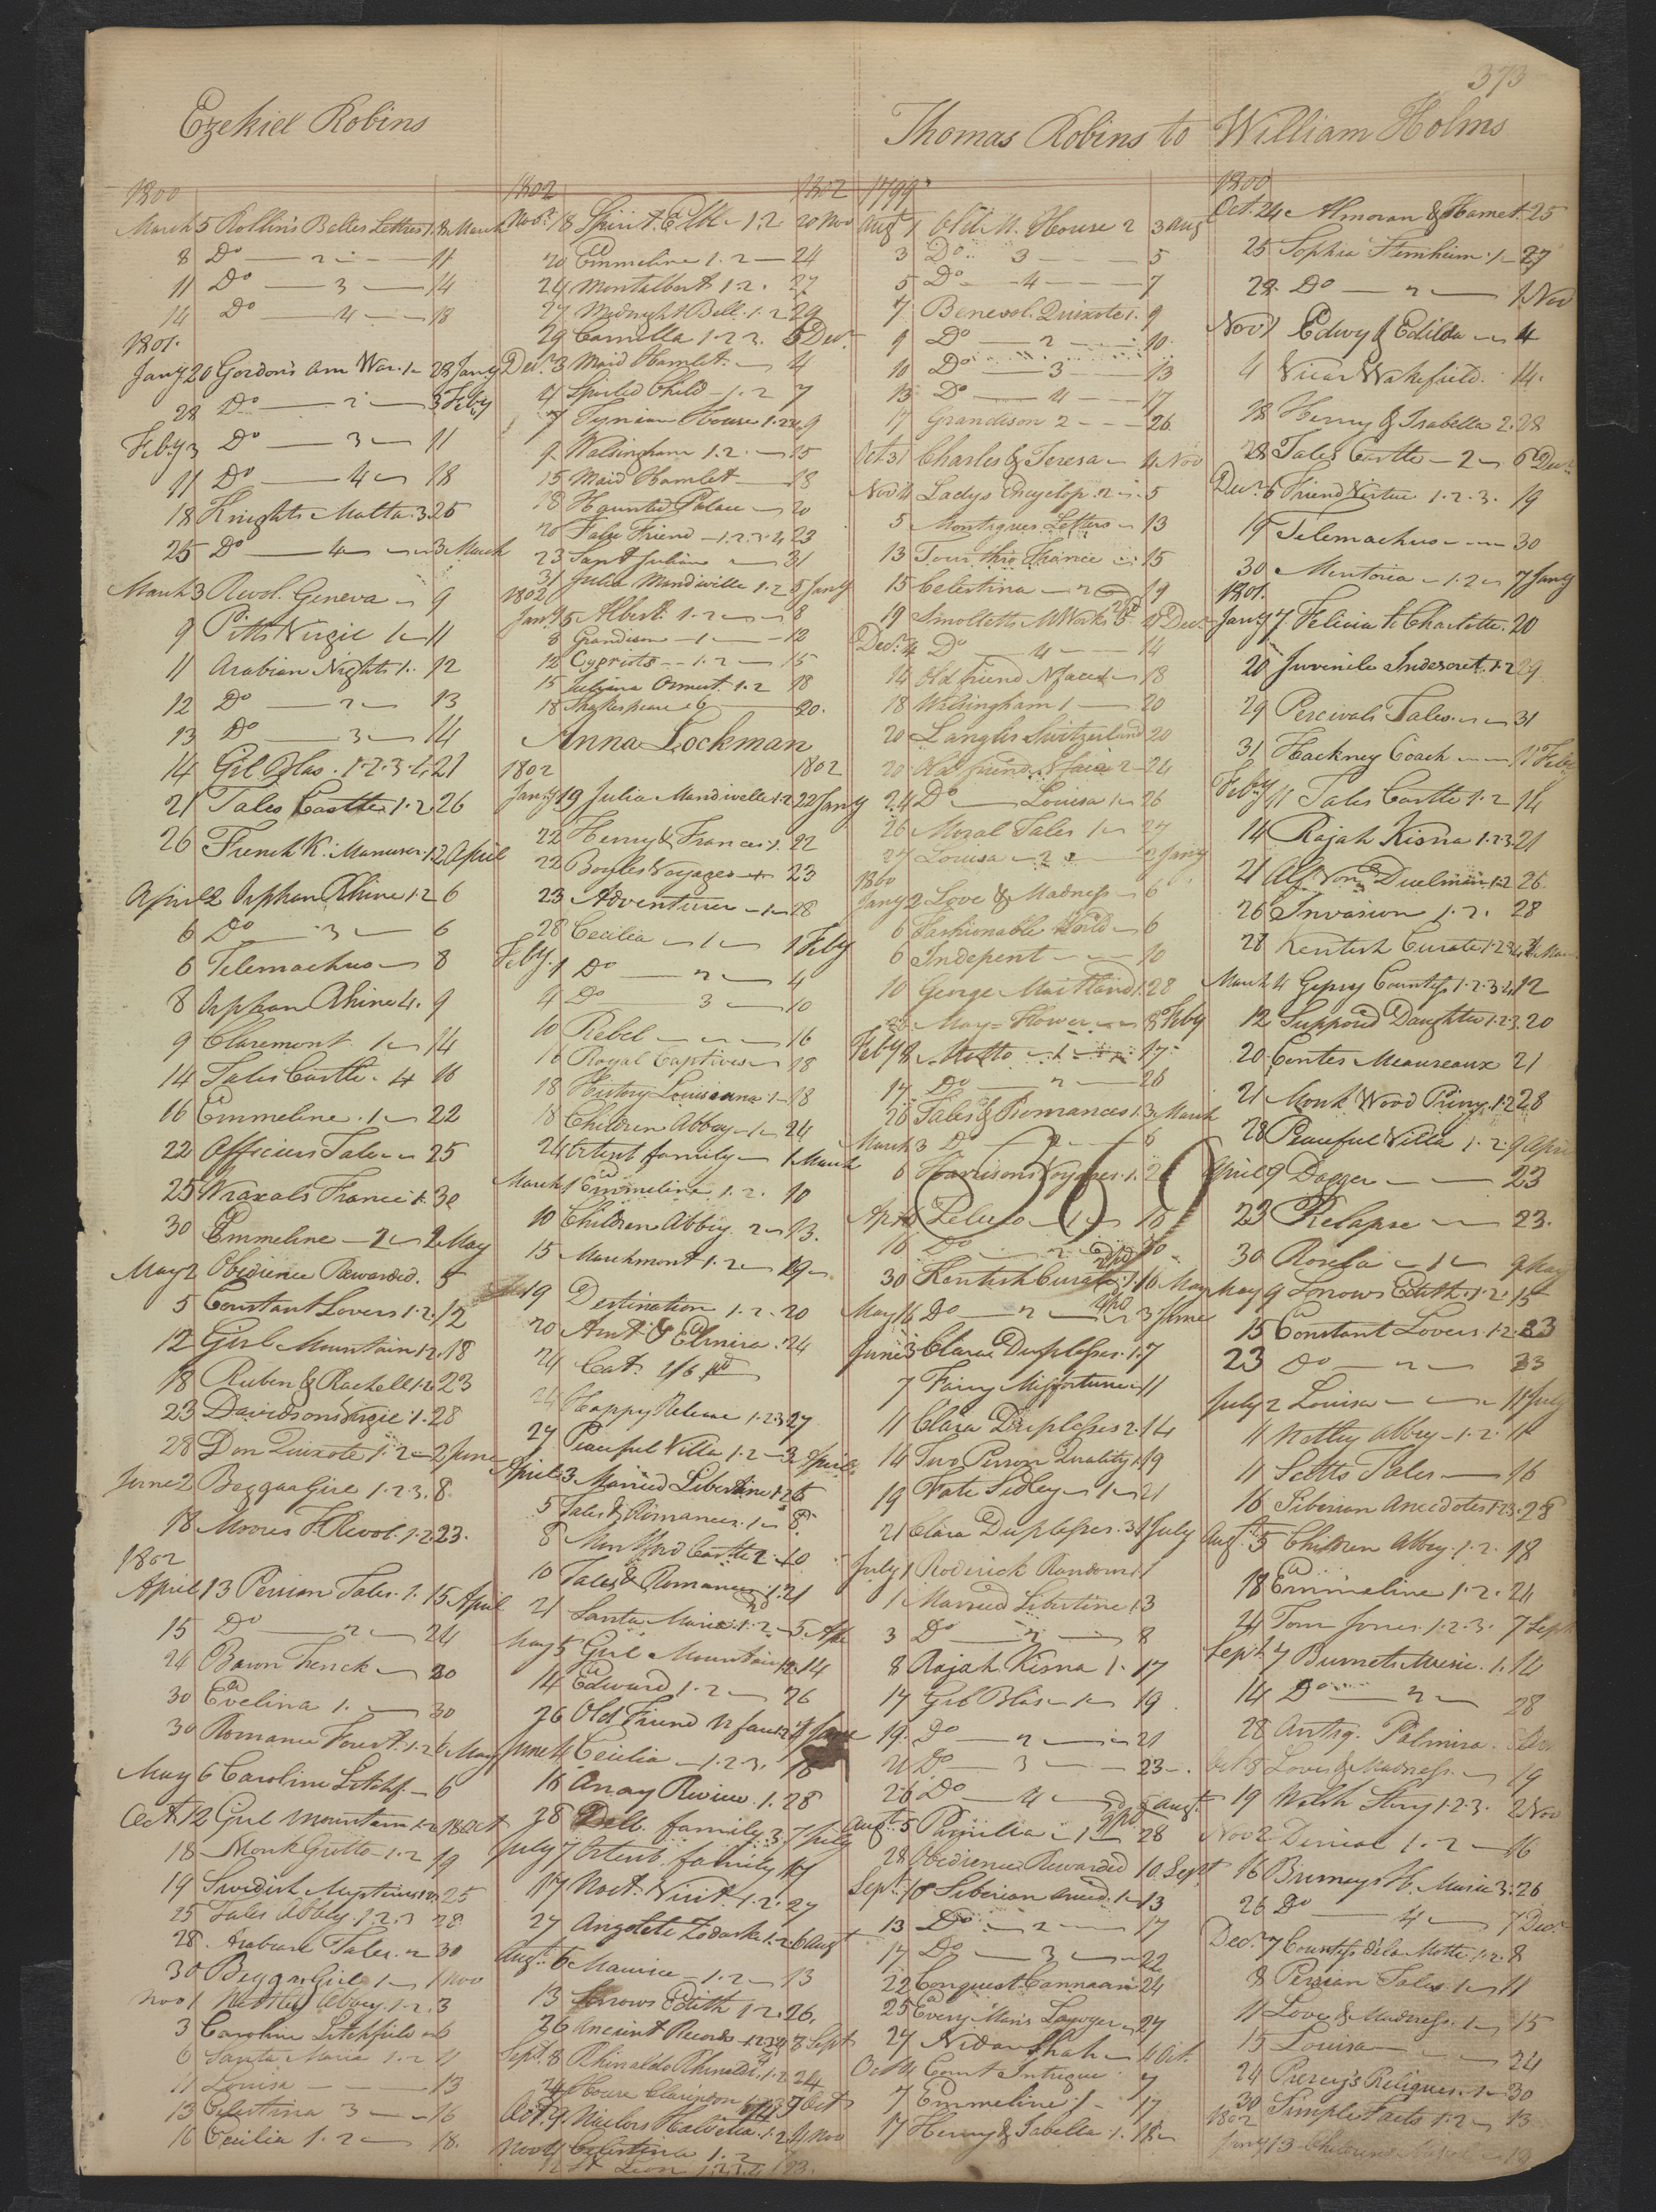 373
Ezekiel Robins
1800
March 5 Rollin's Belles Lettres 1. 8 March
8 Do — 2 — 11
11 Do — 3 — 14
14 Do — 4 — 18
1801.
Jany 20 Gordon's Am War. 1 — 28 Jany
28 Do — 2 — 3 Feby
Feby 3 Do — 3 — 11
11 Do — 4 — 18
18 Knights Malta. 3 25
25 Do — 4 — 3 March
March 3 Revol. Geneva — 9
9 Pitts Virgil 1 — 11
11 Arabian Nights 1. 12
12 Do — 2 — 13
13 Do — 3 — 14
14 Gil Blas. 1.2.3.4. 21
21 Tales Castle 1.2 26
26 French K. Manuscr. 1. 2 April
April 2 Orphan Rhine 1.2 6
6 Do — 3 — 6
6 Telemachus — 8
8 Orphan Rhine 4. 9
9 Claremont 1 — 14
14 Tales Castle. 4 16
16 Emmeline. 1 — 22
22 Officers Tale — 25
25 Wraxals France 1. 30
30 Emmeline — 2 — 2 May
May 2 Obidience Rewarded. 5
5 Constant Lovers 1.2. 12
12 Girl Mountain 1.2. 18
18 Ruben & Rachell 1.2 23
23 Davidsons Virgil 1. 28
28 Don Quixote 1.2 — 2 June
June 2 Beggar Girl 1.2.3. 8
18 Moores F. Revol. 1.2 23.
1802
April 13 Persian Tales. 1. 15 April
15 Do — 2 — 24
24 Baron Trenck — 30
30 Evelina 1. — 30
30 Romance Forest. 1.2 6 May
May 6 Caroline Litchf. — 6
Oct. 12 Girl Mountain 1.2 18 Oct
18 Monk Grotto — 1.2 19
19 Swedish Mysteries 1.2 25
25 Tales Abbey. 1.2.3 28
28. Arabian Tales. 2 30
30 Beggar Girl 1 — 1 Nov
Nov 1 Netley Abbey. 1.2. 3
3 Caroline Litchfield 6
6 Santa Maria 1.2 11
11 Louisa — 13
13 Celestina 3 — 16
16 Cecilia 1.2 — 18.
1802 1802
Novr. 18 Spirit. Elb — 1.2 20 Nov
20 Emmeline 1.2 — 24
24 Montalbert 1.2. 27
27 Midnight Bell. 1.2 29
29 Camilla 1.2.3. 3 Decr.
Decr. 3 Maid Hamlet. — 4
4 Spoiled Child — 1.2 7
7 Tynian House 1.2 9
9 Walsingham 1.2. — 15
15 Maid Hamlet — 18
18 Haunted Palace — 20
20 False Friend — 1.2.3.4 23
23 Saint Julian — 31
31 Julia Mandiville 1.2 5 Jany
1802
Jany 5 Albert. 1.2 — 8
8 Grandison — 1 — 12
12 Cypriots — 1.2 — 15
15 Juliana Ormest. 1.2 18
18 Shakespeare 6 — 20.
Anna Lockman
1802 1802
Jany 19 Julia Mandiville 1.2 22 Jany
22 Henry & Frances 1. 22
22 Boyles Voyages — 23
23 Adventurer — 1 — 28
28 Cecilia — 1 — 1 Feby
Feby. 1 Do — 2 — 4
4 Do — 3 — 10
10 Rebel — 16
16 Royal Captives — 18
18 History Louisiana. 1 — 18
18 Children Abbey — 1 — 24
24 Orient. family — 1 March
March 1 Emmeline. 1.2. 10
10 Children Abbey. 2 — 13.
15 Marchmont 1.2 — 19
19 Destination 1.2. 20
20 Amt. & Elmira. 24
24 Cat. 1/6 pd
24 Happy Release 1.2.3 27
27 Peaceful Villa 1.2 — 3 April
April 3 Married Libertine 1.2 5
5 Tales & Romances. 1 — 8
8 Montford Castle 2. 10
10 Tales & Romances. 1. 21
21 Santa Maria. 1.2. — 5
May 5 Girl Mountain 1.2. 14
14 Edward 1.2 — 26
26 Old Friend N face 4 June
June 4 Cecilia — 1.2.3. 18
18 Anay Review. 1. 28
28 family 3. 7 July
July 7 Orient. family 17
17 Noct. Visit. 1.2. 27
27 Angolete Zodaski. 1.2. 6 Augt
Augt. 6 Maurice — 1.2 — 13
13 Sorrows Edith 1.2. 26.
26 Ancient Records — 1.2.3.4 8 Sept
Sept. 8 Rhinaldo Rhinaldi. 1.2 24
24 House Clarington 1.2.3 9 Oct
Oct. 9 Naelors Halvetia. 1.2 4 Nov
Nov 4 Celestina 1.2
12 St Leon 1.2.3.4 23.
Thomas Robins to William Holms
1799
Augt 1 Old M. House 2 3 Augt
3 Do. 3 — 5
5 Do — 4 — 7
7 Benevol. Quixote 1. 9
9 Do — 2 — 10
10 Do — 3 — 13
13 Do — 4 — 17
17 Grandison 2 — 26
Oct. 31 Charles & Teresa — 4 Nov
Nov 4 Ladys Encyclop. 2 — 5
5 Montagues Letters — 13
13 Tour thro France — 15
15 Celestina — 2 — 19
19 Smolletts M Works 3. 4 Decr.
Decr. 4 Do — 4 — 14
14 Old friend N faced — 18
18 Walsingham 1 — 20
20 Langles Switzerland 20
20 Old friend N face 2 — 24
24 Do — Louisa 1 — 26
26 Moral Tales 1 — 27
27 Louisa — 2 — 2 Jany
1800
Jany 2 Love & Madness — 6
6 Fashionable World — 6
6 Indepent — 10
10 George Maitland 1. 28
28 May = Flower — 8 Feby
Feby 8 Motto — 1 — 17
17 Do — 2 — 26
26 Tales & Romances 1. 3 March
March 3 Do — 2 — 6
6 Harrisons Voyages. 1. 2
369
Apr. 10 Peluso — 1 — 16
16 Do — 2 — 30
30 Kentish Curate. 1. 16 May
May 16 Do — 2 — 3 June
June 3 Clara Duplesses. 1. 7
7 Fairy Misfortunes 11
11 Clara Duplesses 2. 14
14 Two Person Quality 1. 19
19 Fate Sedley — 1 — 21
21 Clara Duplesses. 3. 1 July
July 1 Roderick Random 1. 1
1 Married Libertine 1. 3
3 Do — 2 — 8
8 Rajah Kisna 1. 17
17 Gil Blas — 1 — 19
19. Do — 2 — 21
21 Do — 3 — 23
26 Do — 4 — 5 Augt
Augt. 5 Pamilia — 1 — 28
28 Obidience Rewarded 10 Sept
Sept. 10 Siberian Anecd. 1 — 13
13 Do — 2 — 17
17 Do — 3 — 22
22 Conquest Cannaan 24
25 Every Man's Lawyer — 27
27 Nidar Shah — 4 Oct.
Oct 4 Court Intrigue. 7
7 Emmeline 1 — 17
17 Henry & Isabella 1. 18
1800
Oct. 24 Almoran & Hamet 25
25 Sophia Sternheim. 1 — 27
29. Do — 2 — 1 Nov
Nov 1 Edwy & Edilda — 4
4 Vicar Wakefield. 14.
18 Henry & Isabella 2. 28
28 Tales Castle — 2 — 6 Decr.
Decr. 6 Friend Virtue 1.2.3. 19
19 Telemachus — 30
30 Mentoria — 1.2 — 7 Jany
1801.
Jany 7 Felicia to Charlotte. 20
20 Juvenile Indescret. 1.2 29
29 Percivals Tales. — 31
31 Hackney Coach — 11 Feby
Feby 11 Tales Castle 1.2 14
14 Rajah Kisna 1.2.3. 21
21 Alf. Von Duelman 1.2 26.
26 Invasion 1.2. 28
28 Kentish Curate 1.2.3.4. 4 Mar
March 4 Gypsy Countess 1.2.3.4. 12
12 Suppos'd Daughter 1.2.3. 20
20 Contes Meaureaux 21
21 Monk Wood Priory. 1.2 28
28 Peaceful Villa 1.2. 9 April
April 9 Dagger — 23
23 Relapse — 23.
30 Rosela — 1 — 9 May
May 9 Sorrows Edith. 1.2. 15
15 Constant Lovers 1.2. 23
23 Do — 2 — 23
July 2 Louisa — 11 July
11 Netley Abbey — 1.2. 11
11 Scotts Tales — 16
16 Siberian Anecdotes 1.2.3. 28
Augt. 5 Children Abbey. 1.2. 18
18 Emmeline 1.2. 24
24 Tom Jones. 1.2.3. 7 Sept
Sept. 7 Burnets Music. 1. 14
14 Do — 2 — 28
28 Antiq. Palmira. 8 Oct
Oct 8 Love & Madness. — 19
19 Welsh Story 1.2.3. 2 Nov
Nov 2 Denial 1.2 — 16
16 Burneys H. Music 3. 26
26 Do — 4 — 7 Decr.
Decr. 7 Countess de la Motte. 1.2. 8
8 Persian Tales. 1 — 11
11 Love & Madness. 1 — 15
15 Louisa — 24
24 Percy's Reliques. 1 — 30
30 Simple Facts 1.2 — 13
1802
Jany 13 Children